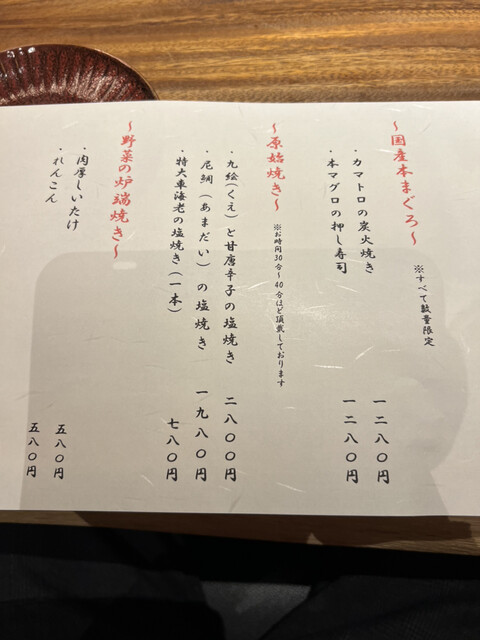 ～国産本まぐろ～
※すべて数量限定
・カマトロの炭火焼き 一二八〇円
・本マグロの押し寿司 一二八〇円
～原始焼き～
※お時間30分～40分ほど頂戴しております
・九絵(くえ)と甘唐辛子の塩焼き 二八〇〇円
・尼鯛(あまだい)の塩焼き 一九八〇円
・特大車海老の塩焼き(一本) 七八〇円
～野菜の炉端焼き～
・肉厚しいたけ 五八〇円
・れんこん 五八〇円